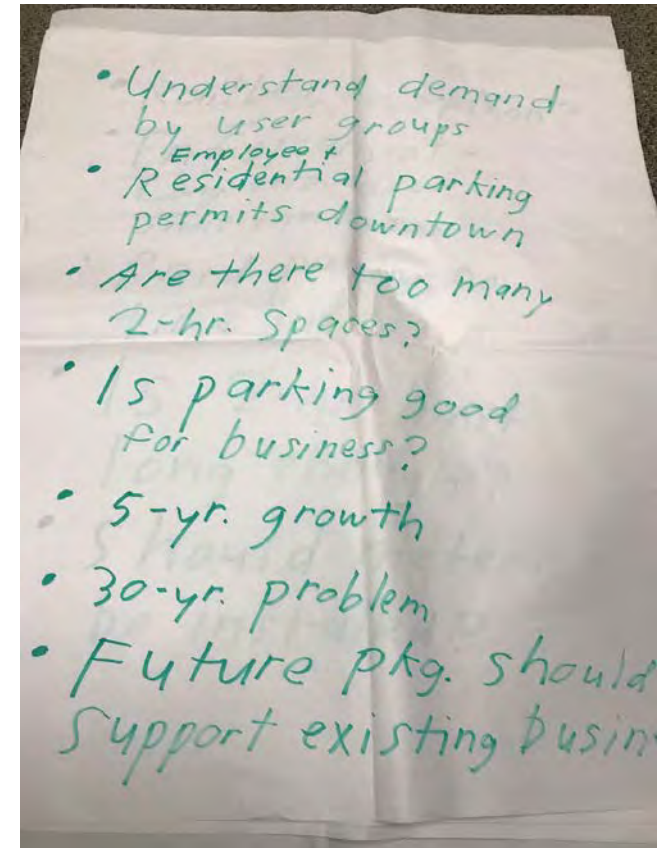 • Understand demand
by user groups
Employee +
• Residential parking
permits downtown
• Are there too many
2-hr. Spaces?
• Is parking good
for business?
• 5-yr. growth
• 30-yr. problem
• Future pkg. should
Support existing busin